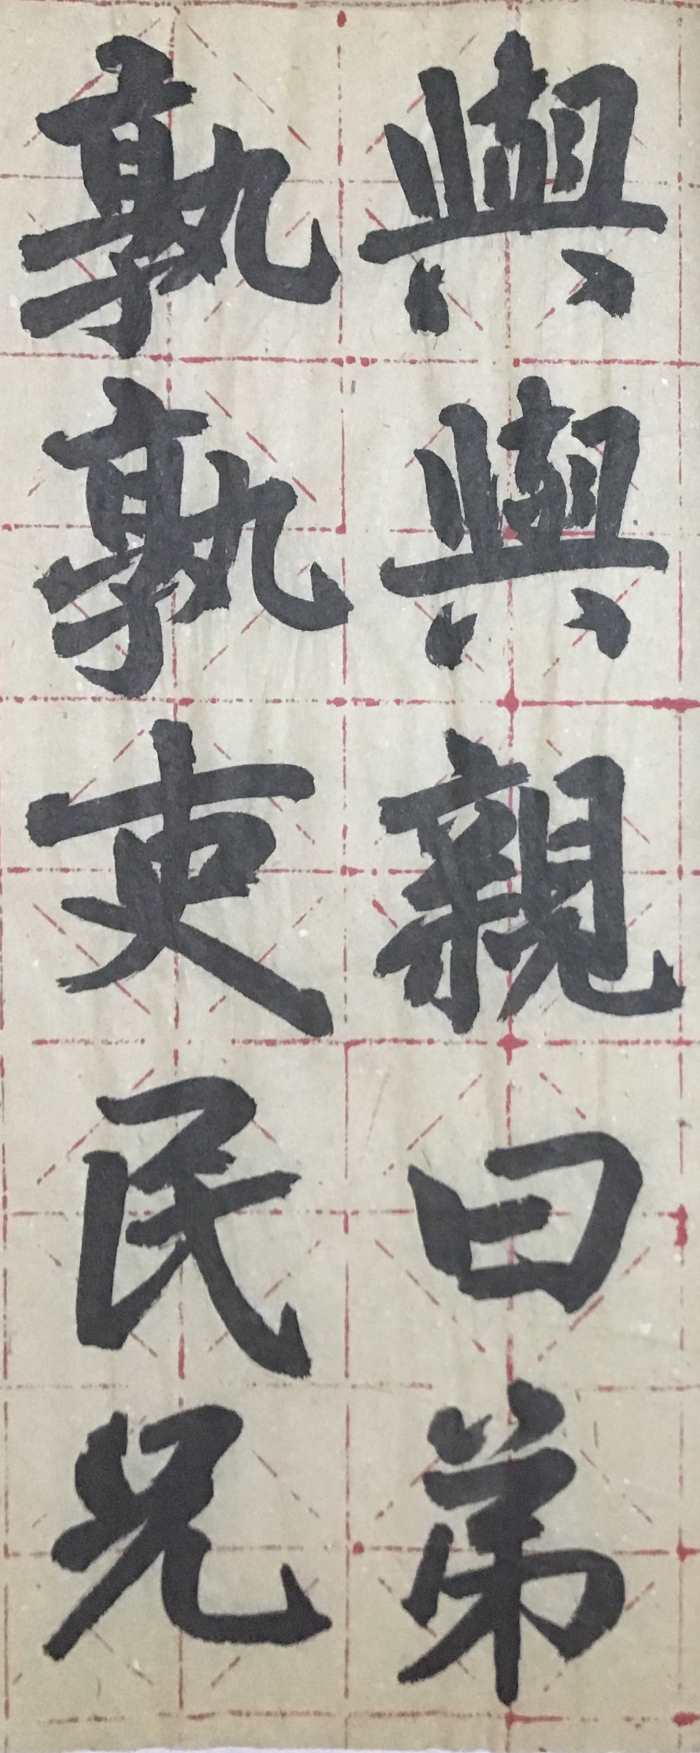 與與親曰弟
孰孰吏民兄